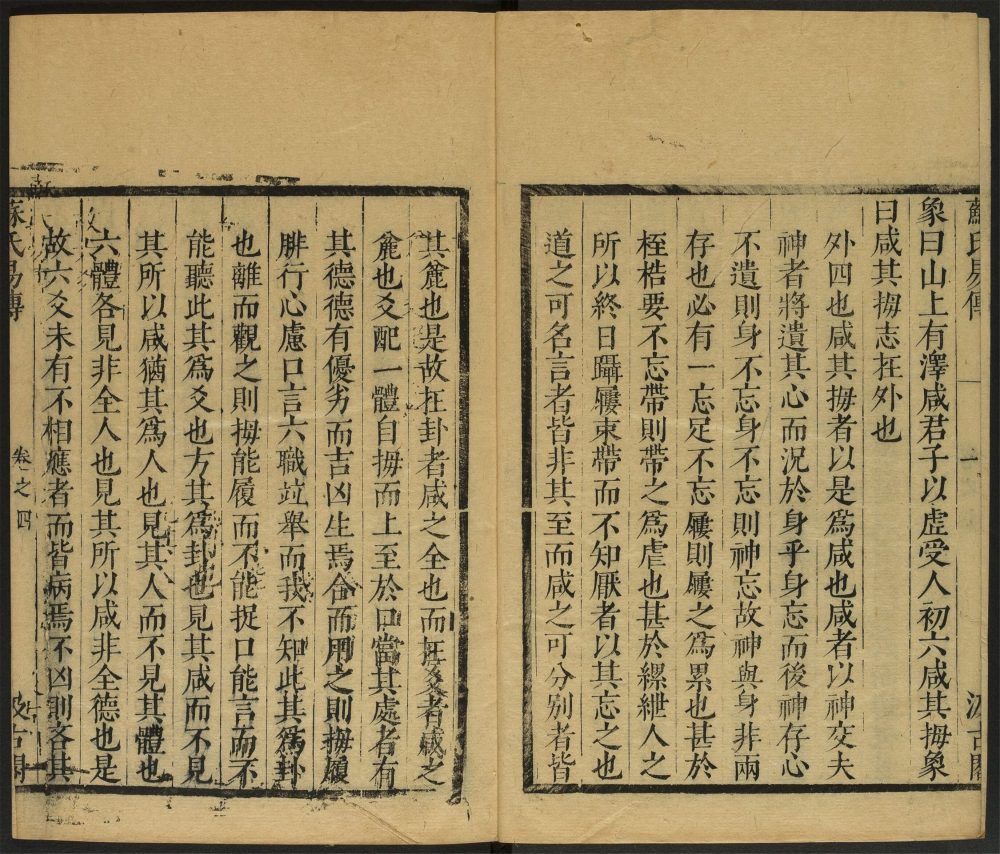 蘇氏易傳
一
汲古閣
象曰山上有澤咸君子以虛受人初六咸其拇象
曰咸其拇志在外也
外四也咸其拇者以是爲咸也咸者以神交夫
神者將遺其心而況於身乎身忘而後神存心
不遺則身不忘身不忘則神忘故神與身非兩
存也必有一忘足不忘屨則屨之爲累也甚於
桎梏要不忘帶則帶之爲虐也甚於縲紲人之
所以終日躡屨束帶而不知厭者以其忘之也
道之可名言者皆非其至而咸之可分別者皆
其麄也是故在卦者咸之全也而在爻者咸之
麄也爻配一體自拇而上至於口當其處者有
其德德有優劣而吉凶生焉合而用之則拇履
腓行心慮口言六職竝舉而我不知此其爲卦
也離而觀之則拇能履而不能捉口能言而不
能聽此其爲爻也方其爲卦也見其咸而不見
其所以咸猶其爲人也見其人而不見其體也
六體各見非全人也見其所以咸非全德也是
故六爻未有不相應者而皆病焉不凶則吝其
蘇氏易傳
卷之四
汲古閣